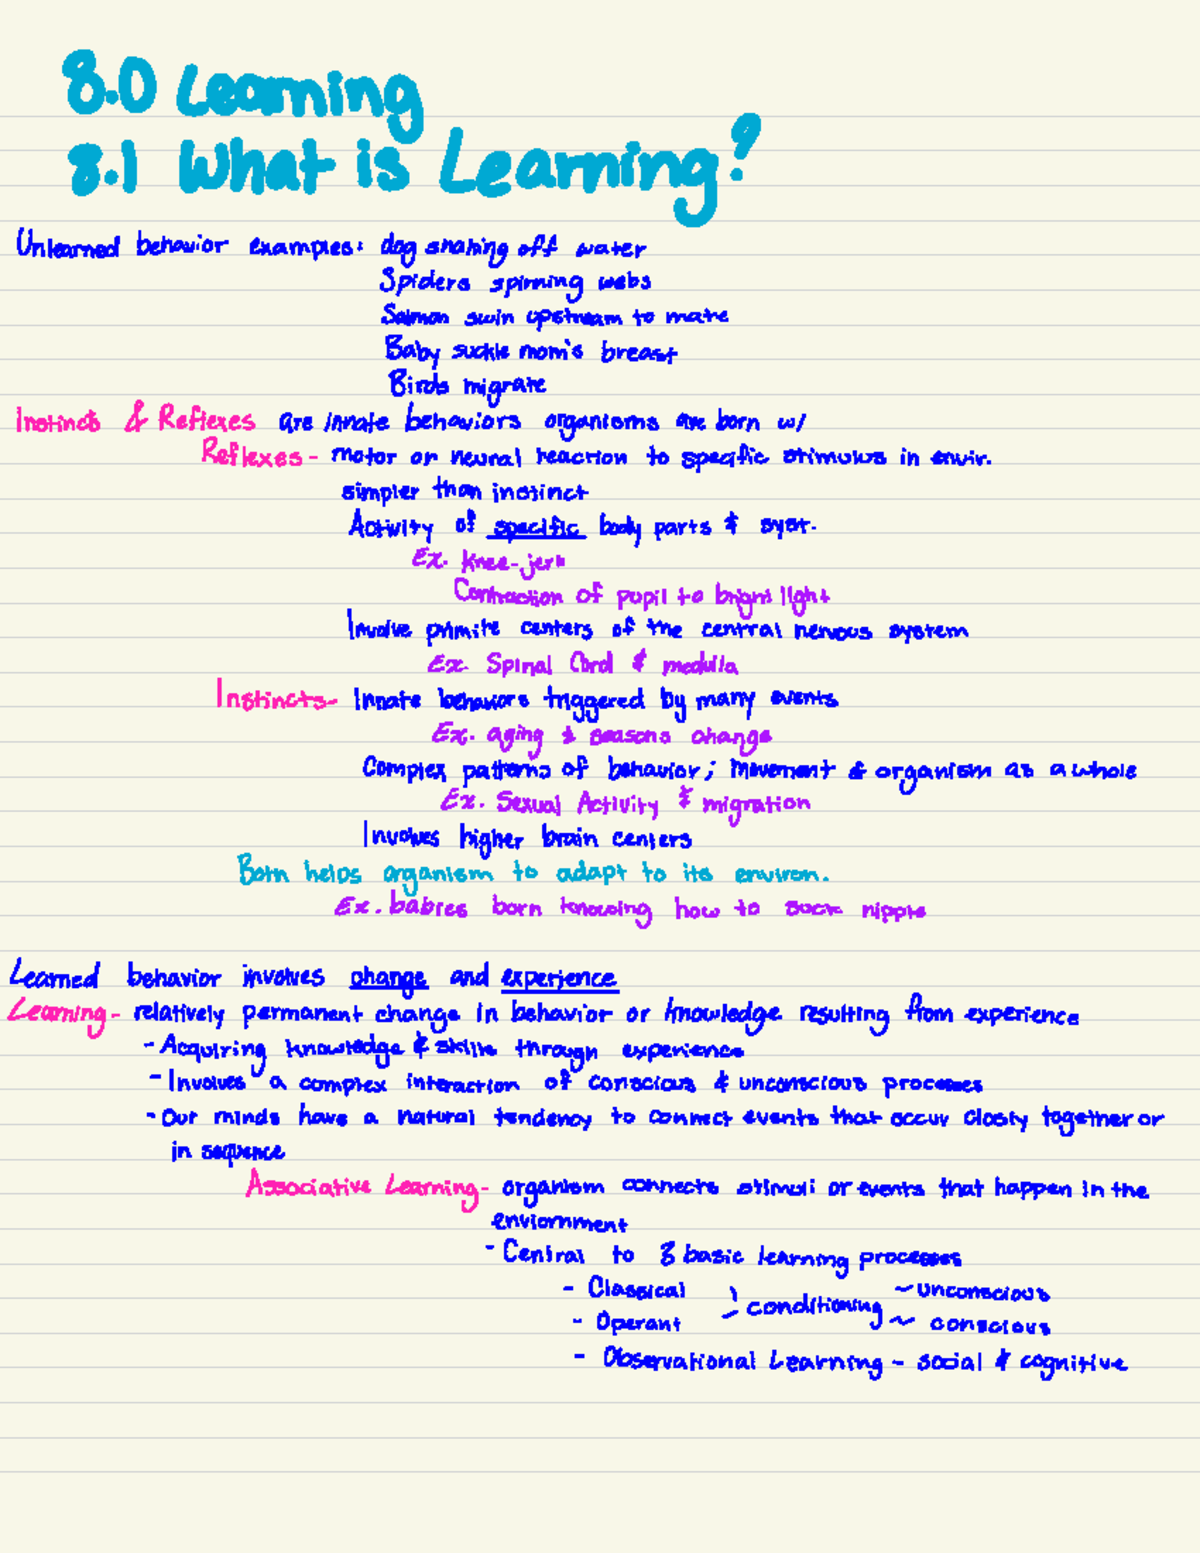 8.0 Learning
8.1 What is Learning?
Unlearned behavior examples: dog shaking off water
Spiders spinning webs
Salmon swin upstream to mate
Baby suckle mom's breast
Birds migrate
Instincts & Reflexes are innate behaviors organisms are born w/
Reflexes - motor or neural reaction to specific stimulus in envir.
simpler than instinct
Activity of specific body parts & syst.
Ex. knee-jerk
Contraction of pupil to bright light
Involve primite centers of the central nervous system
Ex. Spinal Cord & medulla
Instincts - Innate behaviors triggered by many events
Ex. aging & seasons change
Complex patterns of behavior; movement of organism as a whole
Ex. Sexual Activity & migration
Involves higher brain centers
Both helps organism to adapt to its environ.
Ex. babies born knowing how to suck nipple
Learned behavior involves change and experience
Learning - relatively permanent change in behavior or knowledge resulting from experience
- Acquiring knowledge & skills through experience
- Involves a complex interaction of conscious & unconscious processes
- Our minds have a natural tendency to connect events that occur closly together or
in sequence
Associative Learning - organism connects stimuli or events that happen in the
enviornment
- Central to 3 basic learning processes
- Classical } conditioning ~ unconscious
- Operant ~ conscious
- Observational Learning - social & cognitive